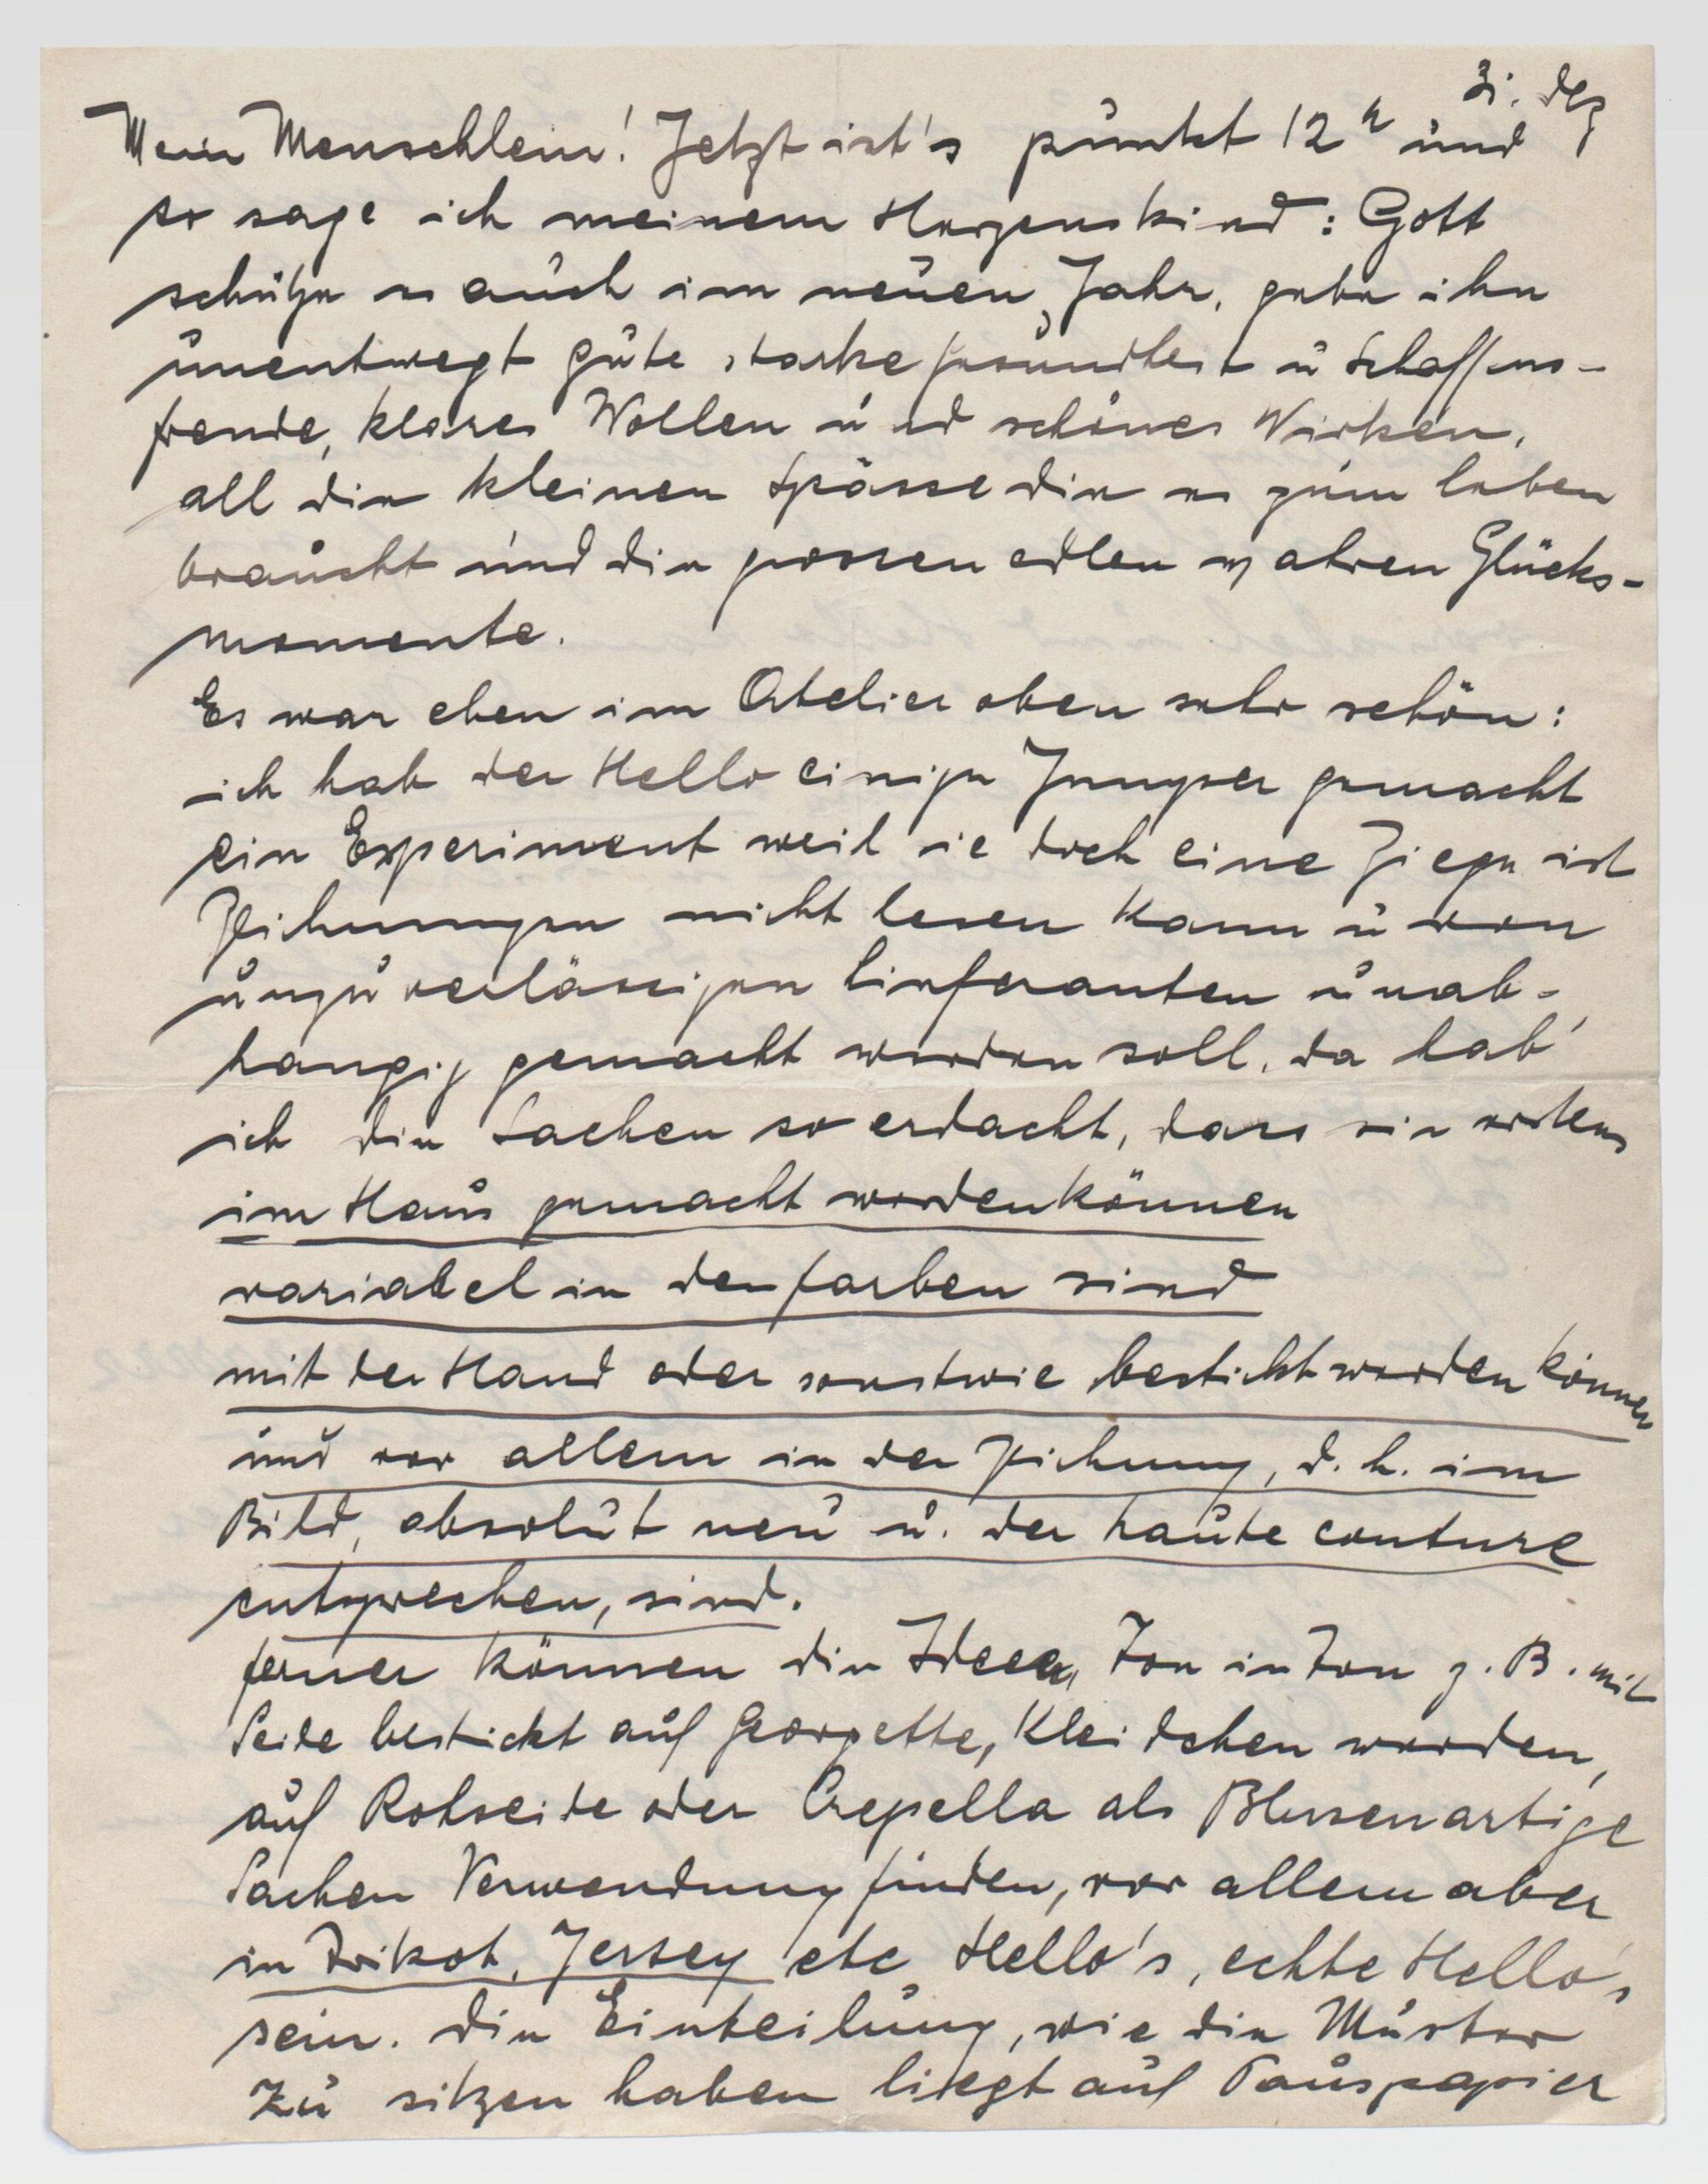 31. Dez
Mein Menschlein! Jetzt ist's punkt 12 h und
so sage ich meinem Herzenskind: Gott
schütze es auch im neuen Jahr, gebe ihm
unentwegt gute starke Gesundheit u Schaffens-
freude, klares Wollen und schönes Wirken,
all die kleinen Spässe die es zum leben
braucht und die grossen edlen wahren Glücks-
momente.
Es war eben im Atelier oben sehr schön:
ich hab der Hello einige Jumper gemacht
ein Experiment weil sie doch eine Ziege ist
Zeichnungen nicht lesen kann u von
unzuverlässigen Lieferanten unab-
hangig gemacht werden soll. da hab'
ich die Sachen so erdacht, dass sie erstens
im Haus gemacht werden können
variabel in den farben sind
mit der Hand oder sonstwie bestickt werden können
und vor allem in der Zeichnung, d. h. im
Bild, absolut neu u. der haute couture
entsprechen, sind.
ferner können die Ideen, Ton in Ton z. B. mit
Seide bestickt auf Georgette, Kleidchen werden,
auf Rohseide oder Crepella als Blusenartige
Sachen Verwendung finden, vor allem aber
in Trikot, Jersey etc Hello's, echte Hello's
sein. die Einteilung, wie die Muster
zu sitzen haben liegt auf Pauspapier